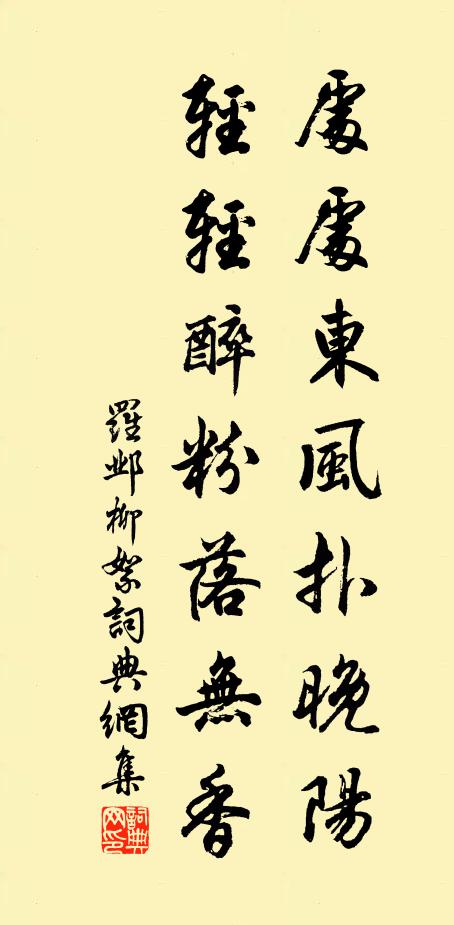 處處東風扑晚陽
輕輕醉粉落無香
羅邺柳絮詞典網集
詞典網印